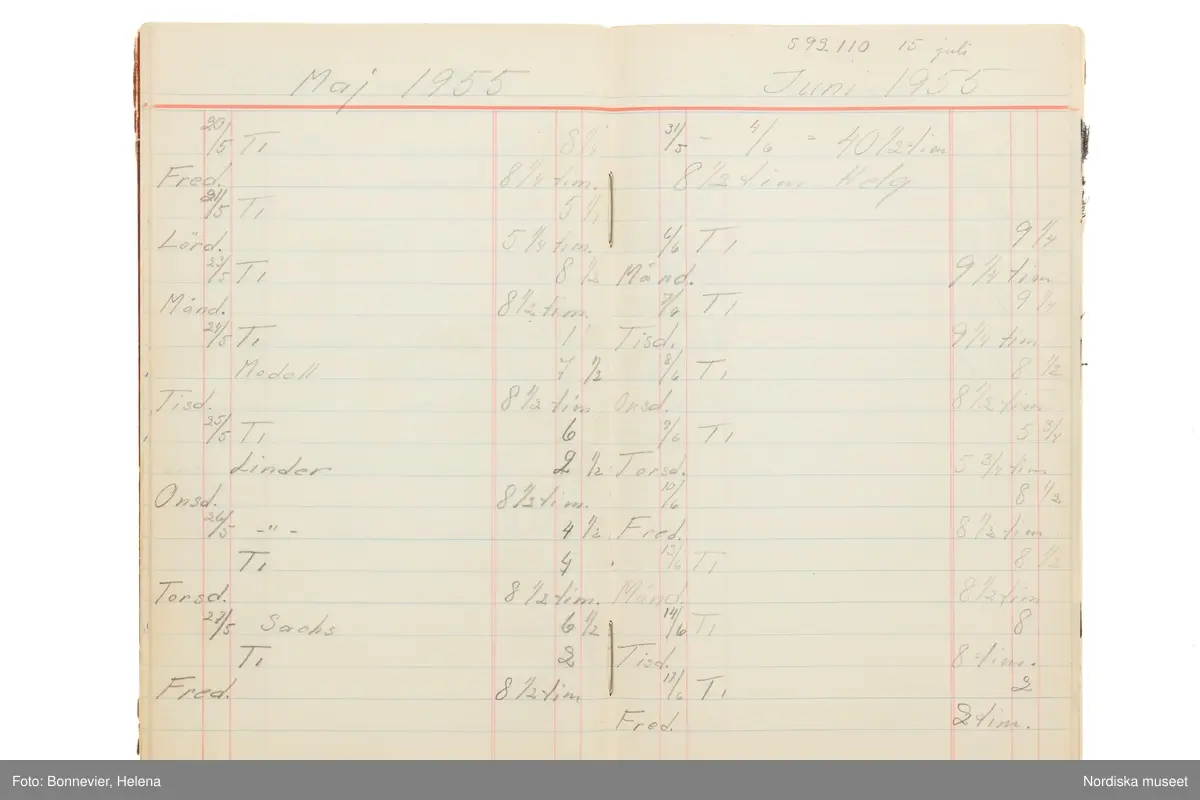 Maj 1955
20/5 T1 8 1/4
Fred. 8 1/4 tim.
21/5 T1 5 1/4
Lörd. 5 1/4 tim.
23/5 T1 8 1/2
Månd. 8 1/2 tim.
24/5 T1 1
Modell 7 1/2
Tisd. 8 1/2 tim
25/5 T1 6
Linder 2 1/2
Onsd. 8 1/2 tim.
26/5 -"- 4 1/2
T1 4
Torsd. 8 1/2 tim.
27/5 Sachs 6 1/2
T1 2
Fred. 8 1/2 tim
592110 15 juli
Juni 1955
31/5 - 4/6 = 40 1/2 tim
8 1/2 tim Helg
6/6 T1 9 1/4
Månd. 9 1/4 tim
7/6 T1 9 1/4
Tisd. 9 1/4 tim
8/6 T1 8 1/2
Onsd. 8 1/2 tim
9/6 T1 5 3/4
Torsd. 5 3/4 tim
10/6 8 1/2
Fred. 8 1/2 tim
13/6 T1 8 1/2
Månd. 8 1/2 tim
14/6 T1 8
Tisd. 8 tim.
17/6 T1 2
Fred. 2 tim.
Foto: Bonnevier, Helena
Nordiska museet